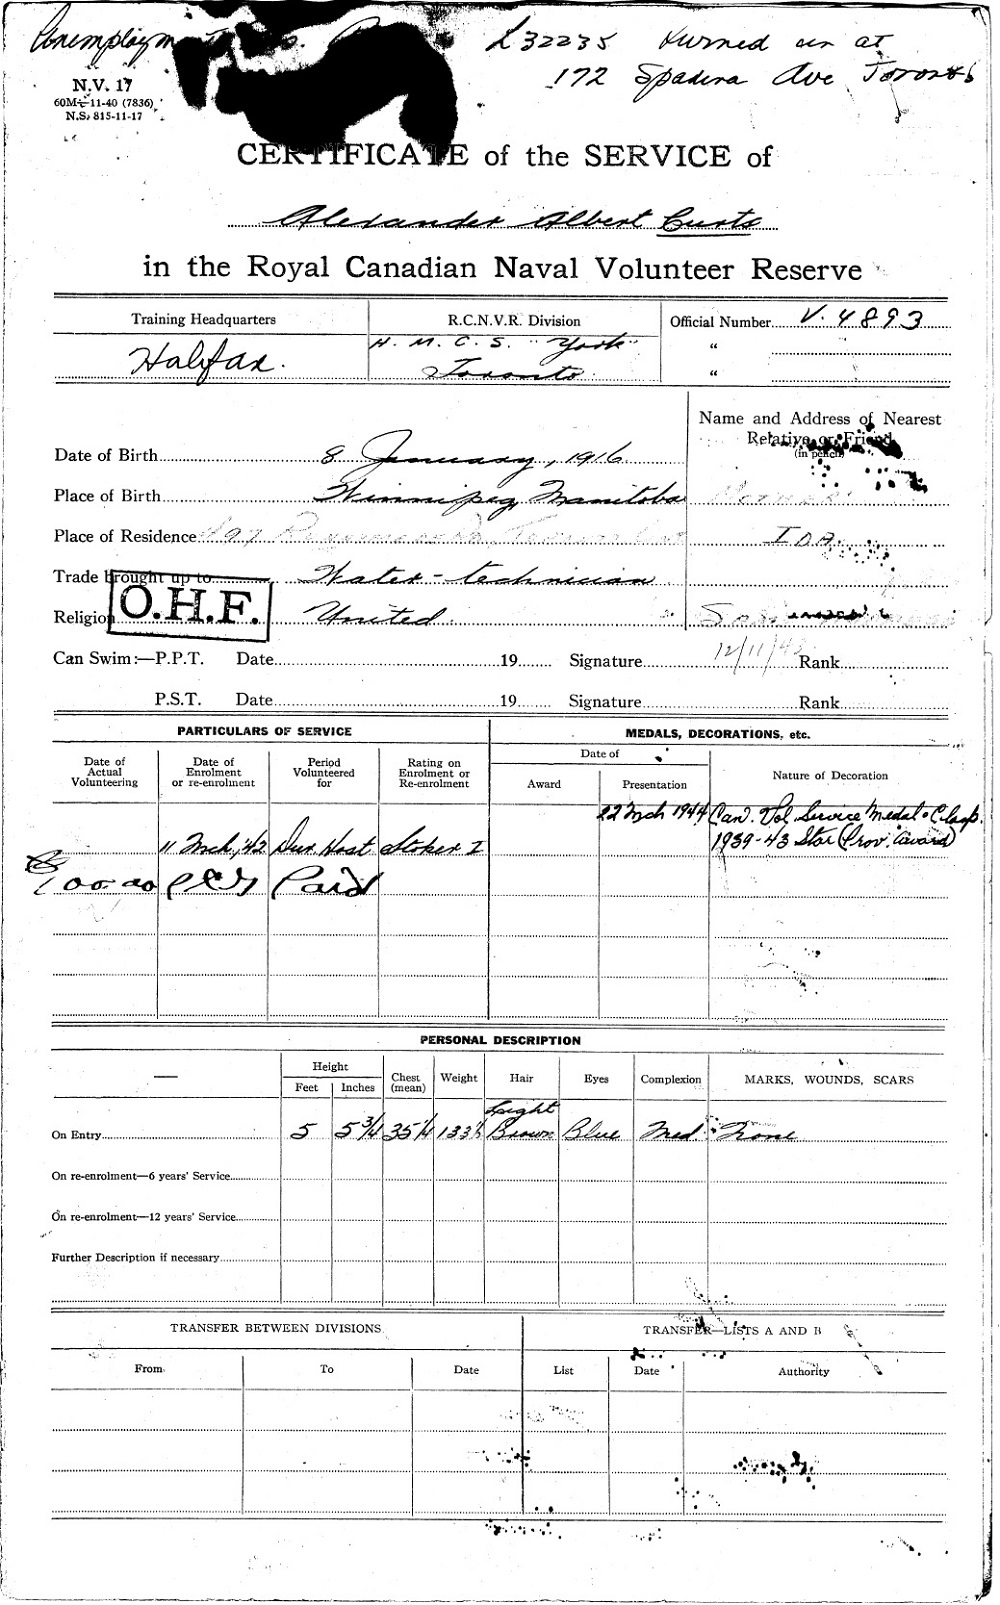 L32235 turned in at
172 Spadina Ave Toronto
N.V. 17
60M—11-40 (7836)
N.S. 815-11-17
CERTIFICATE of the SERVICE of
Alexander Albert Curts
in the Royal Canadian Naval Volunteer Reserve
Training Headquarters R.C.N.V.R. Division Official Number V. 4893
Halifax. H. M. C. S. "York" "
Toronto. "
Name and Address of Nearest
Relative or Friend
(in pencil)
Date of Birth 8 January, 1916
Place of Birth Winnipeg, Manitoba
Place of Residence IDA
Trade brought up to Water-technician
Religion United.
O.H.F.
Can Swim:—P.P.T. Date 19 Signature 12/11/42 Rank
P.S.T. Date 19 Signature Rank
PARTICULARS OF SERVICE MEDALS, DECORATIONS, etc.
Date of Actual Volunteering Date of Enrolment or re-enrolment Period Volunteered for Rating on Enrolment or Re-enrolment Date of Award Presentation Nature of Decoration
22 Mch 1944 Can. Vol. Service Medal & Clasp.
11 Mch, '42 Dur. Host. Stoker I 1939-43 Star (Prov. award)
Paid
PERSONAL DESCRIPTION
— Height Feet Inches Chest (mean) Weight Hair Eyes Complexion MARKS, WOUNDS, SCARS
On Entry 5 5 3/4 35 1/4 133 1/2 Light Brown Blue Med. None
On re-enrolment—6 years' Service
On re-enrolment—12 years' Service
Further Description if necessary
TRANSFER BETWEEN DIVISIONS TRANSFER—LISTS A AND B
From To Date List Date Authority